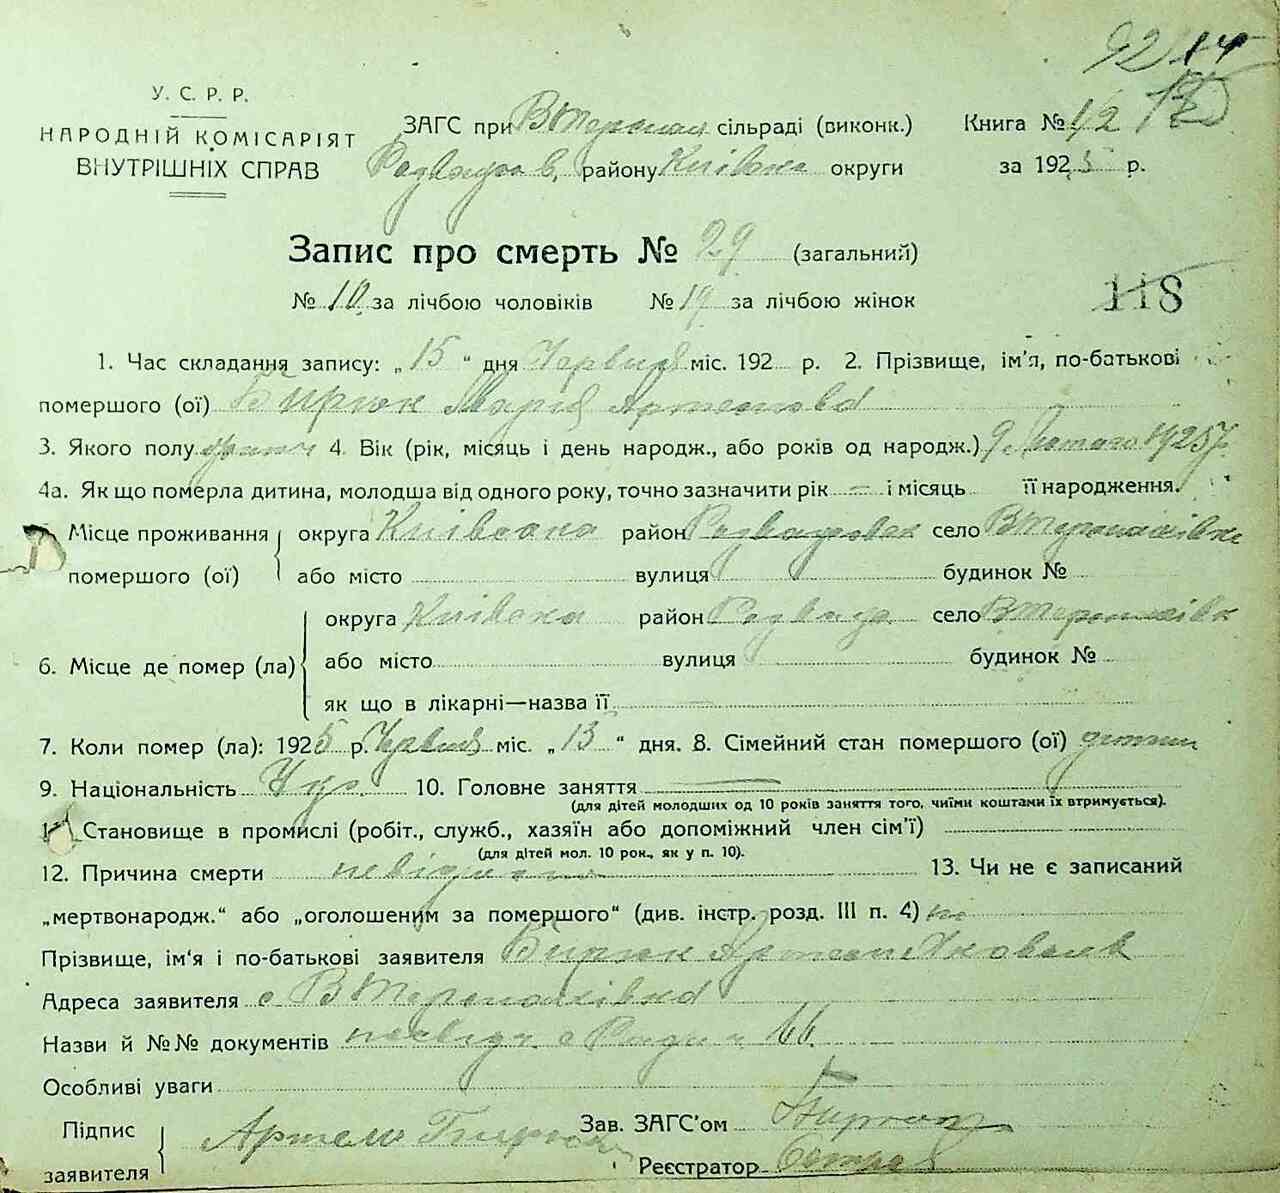 У. С. Р. Р.
НАРОДНІЙ КОМІСАРІЯТ
ВНУТРІШНІХ СПРАВ
ЗАГС при сільраді (виконк.) Книга № 12
району Київська округи за 1925 р.
Запис про смерть № 29 (загальний)
№ 10 за лічбою чоловіків № 19 за лічбою жінок
118
1. Час складання запису: „15“ дня Червня міс. 192 р. 2. Прізвище, ім'я, по-батькові
помершого (ої) Бирюк Марія Артемова
3. Якого полу 4. Вік (рік, місяць і день народж., або років од народж.) 9 Лютого 1925 р.
4а. Як що померла дитина, молодша від одного року, точно зазначити рік — і місяць її народження.
Місце проживання помершого (ої) округа Київська район село
або місто вулиця будинок №
6. Місце де помер (ла) округа Київська район село
або місто вулиця будинок №
як що в лікарні—назва її
7. Коли помер (ла): 1925 р. Червня міс. „13“ дня. 8. Сімейний стан помершого (ої) дитина
9. Національність Укр. 10. Головне заняття
(для дітей молодших од 10 років заняття того, чиїми коштами їх втримується).
Становище в промислі (робіт., служб., хазяїн або допоміжний член сім'ї)
(для дітей мол. 10 рок., як у п. 10).
12. Причина смерти невідомо 13. Чи не є записаний
„мертвонародж.“ або „оголошеним за помершого“ (див. інстр. розд. III п. 4) ні
Прізвище, ім'я і по-батькові заявителя Бирюк Артем Яковлев
Адреса заявителя с
Назви й №№ документів
Особливі уваги
Підпис заявителя Артем Бирюк
Зав. ЗАГС'ом
Реєстратор